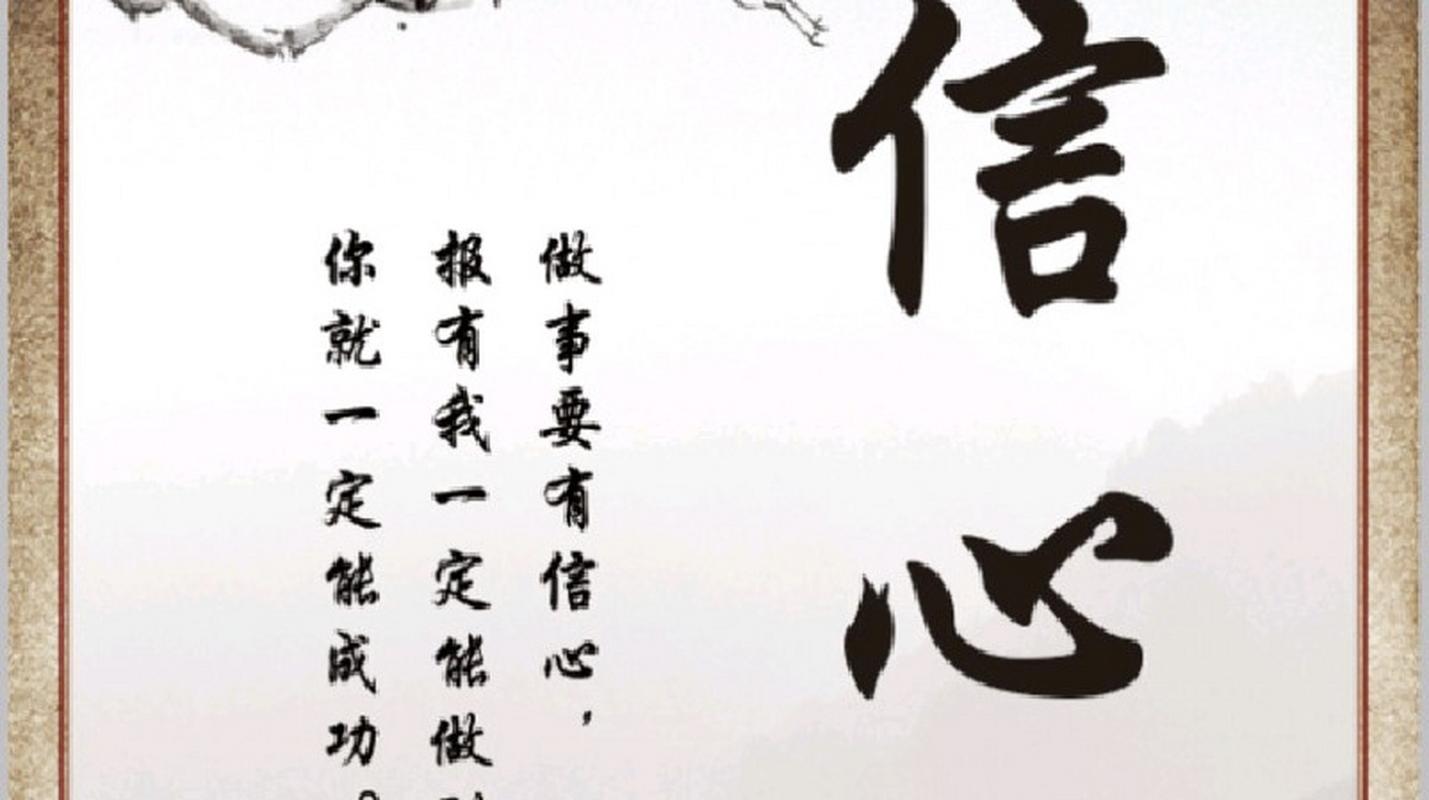 信心
做事要有信心，
报有我一定能做
你就一定能成功。